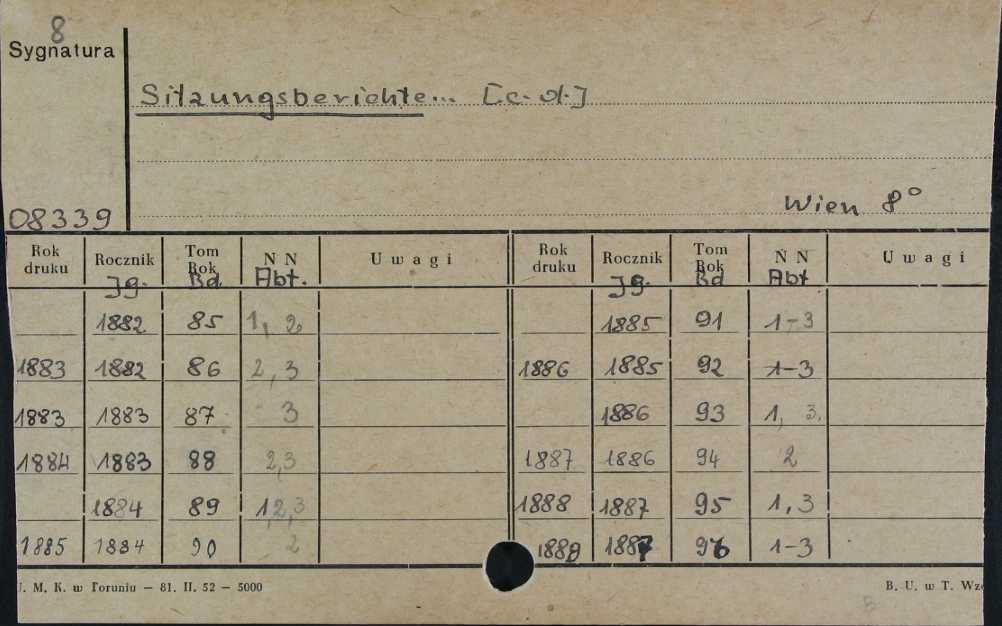 8
Sygnatura
Sitzungsberichte... [c. d.]
Wien 8°
08339
Rok druku Rocznik Tom Rok N N Uwagi Rok druku Rocznik Tom Rok N N Uwagi
Jg. Bd. Abt. Jg. Bd Abt
1882 85 1, 2 1885 91 1-3
1883 1882 86 2, 3 1886 1885 92 1-3
1883 1883 87 3 1886 93 1, 3.
1884 1883 88 2,3 1887 1886 94 2
1884 89 1,2,3 1888 1887 95 1, 3
1885 1884 90 2 1888 1887 96 1-3
U. M. K. w Toruniu — 81. II. 52 — 5000 B. U. w T. Wzó